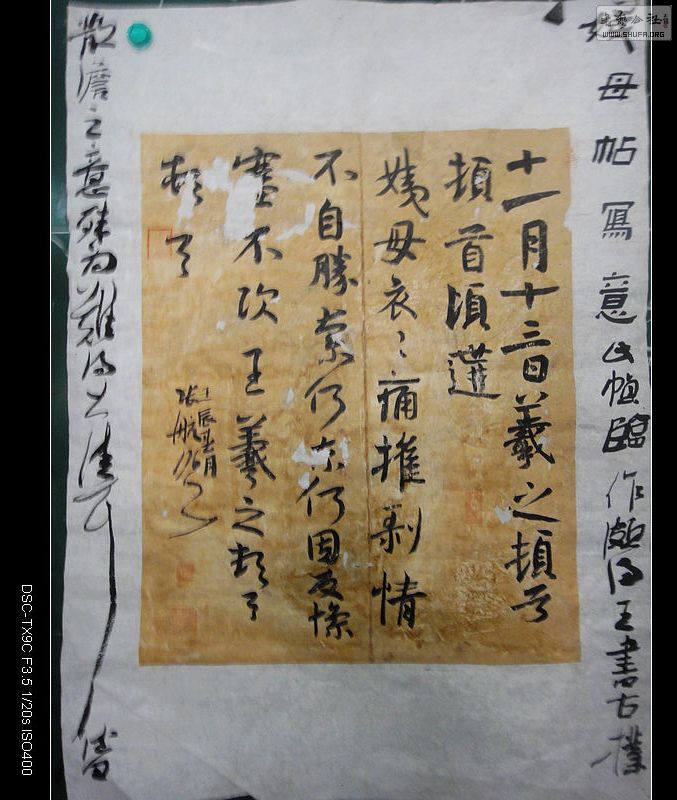 姨母帖寫意此幀臨作頗得王書古樸
十一月十三日羲之頓首
頓首頃遘
姨母哀ミ痛摧剥情
不自勝柰何柰何因反慘
塞不次王羲之頓首
頓首
壬辰
張航臨
散澹之意殊为難得之佳
WWW.SHUFA.ORG
DSC-TX9C F3.5 1/20s ISO400